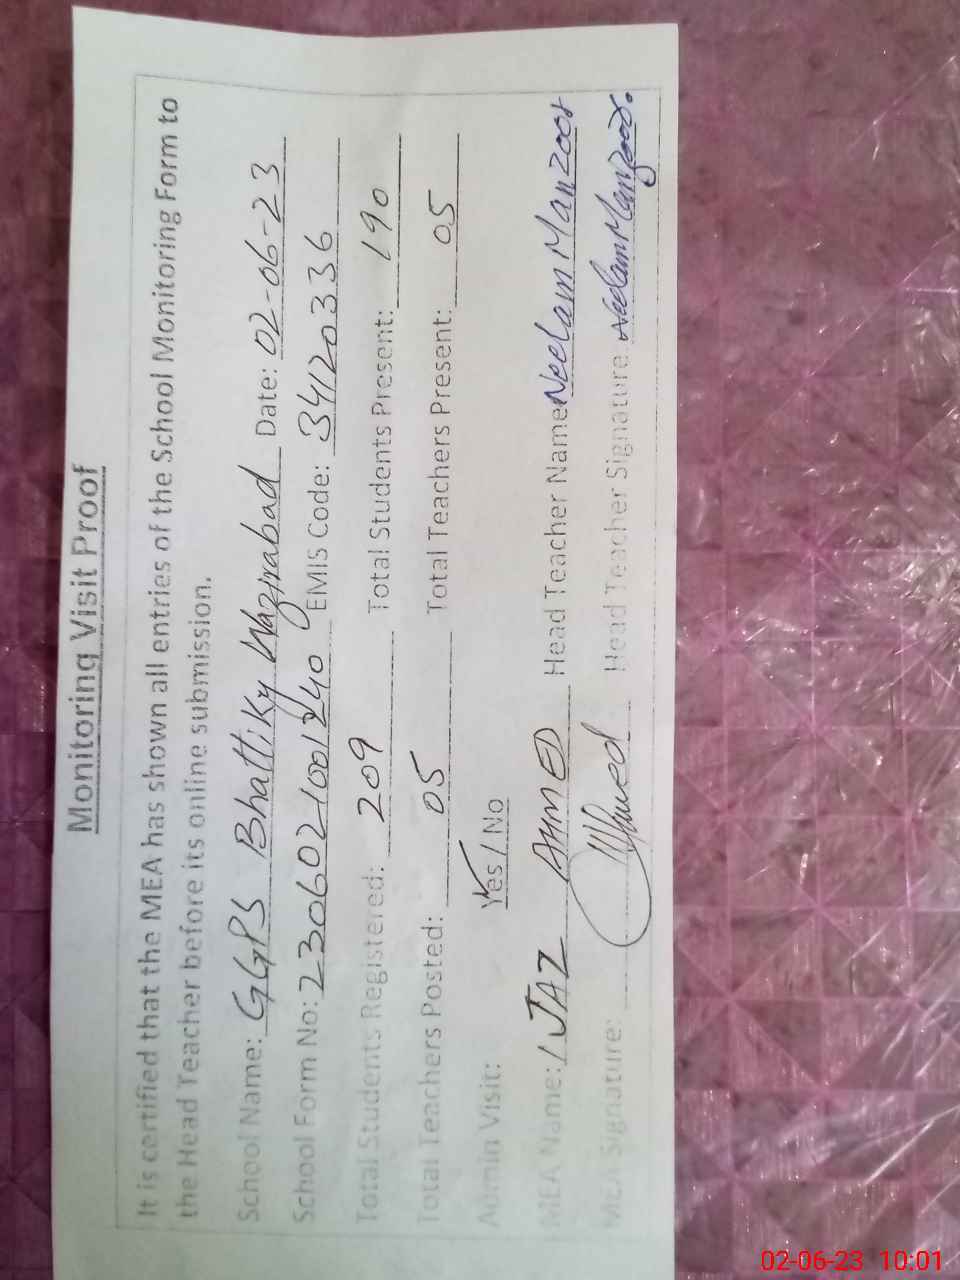 Monitoring Visit Proof
It is certified that the MEA has shown all entries of the School Monitoring Form to
the Head Teacher before its online submission.
School Name: GGPS Bhattiky Wazirabad Date: 02-06-23
School Form No: 2306021001240 EMIS Code: 34120336
Total Students Registered: 209 Total Students Present: 190
Total Teachers Posted: 05 Total Teachers Present: 05
Admin Visit: Yes / No
MEA Name: IJAZ AHMED Head Teacher Name: Neelam Manzoor
MEA Signature: Ahmed Head Teacher Signature: Neelam Manzoor.
02-06-23 10:01